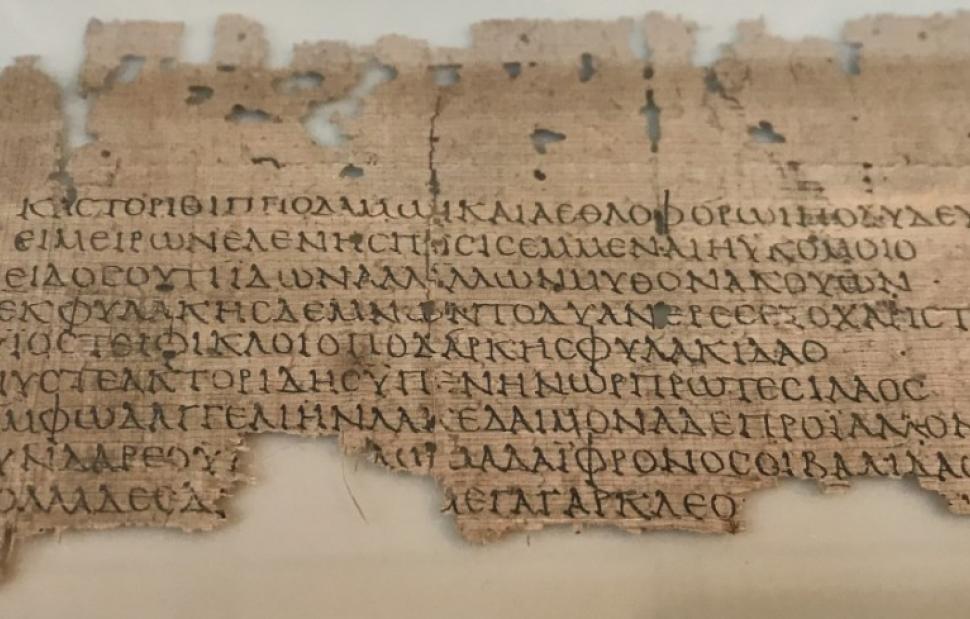 ΚΑΣΤΟΡΙΘΙΠΠΟΔΑΜΩΙΚΑΙΑΕΘΛΟΦΟΡΩΙΠΟΛΥΔΕΥ
ΕΙΜΕΙΡΩΝΕΛΕΝΗCΠΟCΙCΕΜΜΕΝΑΙΗΥΚΟΜΟΙΟ
ΕΙΔΟCΟΥΤΙΪΔΩΝΑΛΛΑΛΛΩΝΜΥΘΟΝΑΚΟΥΩΝ
ΕΚΦΥΛΑΚΗCΔΕΜΝΩΝΤΟΔΥΑΝΕΡΕCΕΞΟΧΑΡΙCΤ
ΥΙΟCΤΕΙΦΙΚΛΟΙΟΠΟΔΑΡΚΗCΦΥΛΑΚΙΔΑΟ
ΗΥCΤΕΑΚΤΟΡΙΔΗCΥΠΕΡΗΝΩΡΠΡΩΤΕCΙΛΑΟC
ΜΦΩΔΑΓΓΕΛΙΗΝΛΑΚΕΔΑΙΜΟΝΑΔΕΠΡΟΪΑΛΛΟΝ
ΥΝΔΑΡΕΟΥ ΔΩΜΑΔΑΪΦΡΟΝΟCΟΙΒΑΛΙΔΑΟ
ΟΛΛΑΔΕCΔ ΜΕΓΑΓΑΡΚΛΕΟ